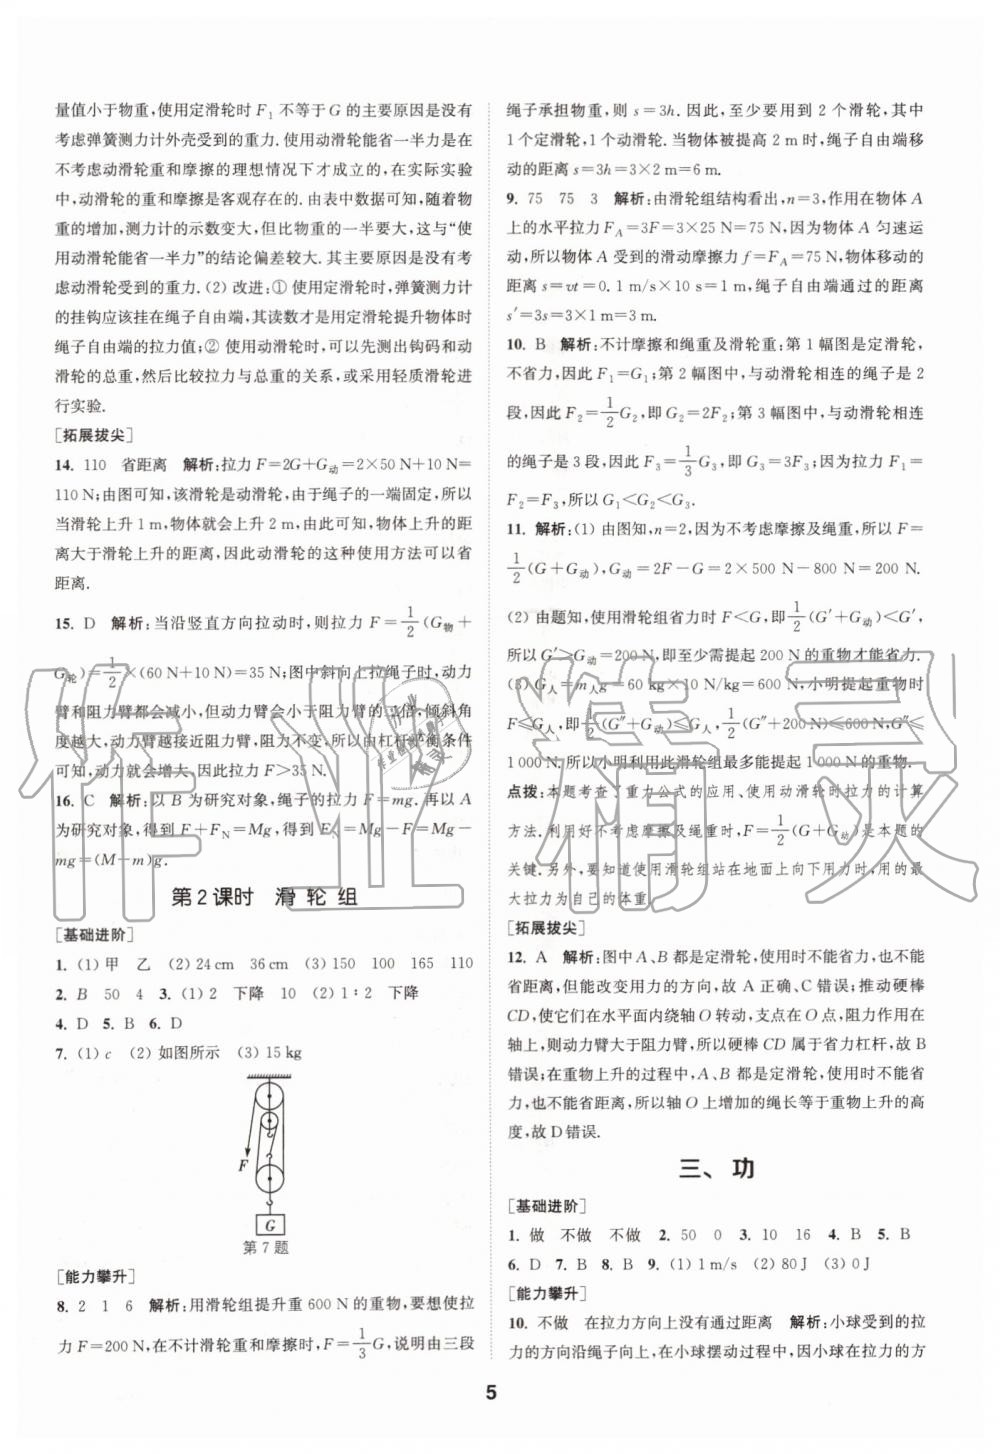 量值小于物重,使用定滑轮时 F₁ 不等于 G 的主要原因是没有
考虑弹簧测力计外壳受到的重力. 使用动滑轮能省一半力是在
不考虑动滑轮重和摩擦的理想情况下才成立的,在实际实验
中,动滑轮的重和摩擦是客观存在的. 由表中数据可知,随着物
重的增加,测力计的示数变大,但比物重的一半要大,这与“使
用动滑轮能省一半力”的结论偏差较大. 其主要原因是没有考
虑动滑轮受到的重力. (2) 改进:① 使用定滑轮时,弹簧测力计
的挂钩应该挂在绳子自由端,其读数才是用定滑轮提升物体时
绳子自由端的拉力值;② 使用动滑轮时,可以先测出钩码和动
滑轮的总重,然后比较拉力与总重的关系,或采用轻质滑轮进
行实验.
[拓展拔尖]
14. 110 省距离 解析:拉力 F=2G+G动=2×50 N+10 N=
110 N;由图可知,该滑轮是动滑轮,由于绳子的一端固定,所以
当滑轮上升 1 m,物体就会上升 2 m,由此可知,物体上升的距
离大于滑轮上升的距离,因此动滑轮的这种使用方法可以省
距离.
15. D 解析:当沿竖直方向拉动时,则拉力 F=1/2(G物+
G轮)=1/2×(60 N+10 N)=35 N;图中斜向上拉绳子时,动力
臂和阻力臂都会减小,但动力臂会小于阻力臂的二倍,倾斜角
度越大,动力臂越接近阻力臂,阻力不变,所以由杠杆平衡条件
可知,动力就会增大. 因此拉力 F>35 N.
16. C 解析:以 B 为研究对象,绳子的拉力 F=mg. 再以 A
为研究对象,得到 F+F_N=Mg,得到 F_N=Mg-F=Mg-
mg=(M-m)g.
第 2 课时 滑 轮 组
[基础进阶]
1. (1) 甲 乙 (2) 24 cm 36 cm (3) 150 100 165 110
2. B 50 4 3. (1) 2 下降 10 (2) 1∶2 下降
4. D 5. B 6. D
7. (1) c (2) 如图所示 (3) 15 kg
F
G
第 7 题
[能力攀升]
8. 2 1 6 解析:用滑轮组提升重 600 N 的重物,要想使拉
力 F=200 N,在不计滑轮重和摩擦时,F=1/3G,说明由三段
绳子承担物重,则 s=3h. 因此,至少要用到 2 个滑轮,其中
1 个定滑轮,1 个动滑轮. 当物体被提高 2 m 时,绳子自由端移
动的距离 s=3h=3×2 m=6 m.
9. 75 75 3 解析:由滑轮组结构看出,n=3,作用在物体 A
上的水平拉力 F_A=3F=3×25 N=75 N,物体 A 匀速运
动,所以物体 A 受到的滑动摩擦力 f=F_A=75 N,物体移动的
距离 s=vt=0.1 m/s×10 s=1 m,绳子自由端通过的距离
s′=3s=3×1 m=3 m.
10. B 解析:不计摩擦和绳重及滑轮重:第 1 幅图是定滑轮,
不省力,因此 F₁=G₁;第 2 幅图中,与动滑轮相连的绳子是 2
段,因此 F₂=1/2G₂,即 G₂=2F₂;第 3 幅图中,与动滑轮相连
的绳子是 3 段,因此 F₃=1/3G₃,即 G₃=3F₃;因为拉力 F₁=
F₂=F₃,所以 G₁<G₂<G₃.
11. 解析:(1) 由图知,n=2,因为不考虑摩擦及绳重,所以 F=
1/2(G+G动),G动=2F-G=2×500 N-800 N=200 N.
(2) 由题知,使用滑轮组省力时 F<G,即1/2(G′+G动)<G′,
所以 G′>G动=200 N,即至少需提起 200 N 的重物才能省力.
(3) G人=m人g=60 kg×10 N/kg=600 N,小明提起重物时
F≤G人,即1/2(G″+G动)≤G人,1/2(G″+200 N)≤600 N,G″≤
1 000 N,所以小明利用此滑轮组最多能提起 1 000 N 的重物.
点拨:本题考查了重力公式的应用、使用动滑轮时拉力的计算
方法. 利用好不考虑摩擦及绳重时,F=1/2(G+G动)是本题的
关键. 另外,要知道使用滑轮组站在地面上向下用力时,用的最
大拉力为自己的体重.
[拓展拔尖]
12. A 解析:图中 A、B 都是定滑轮,使用时不能省力,也不能
省距离,但能改变用力的方向,故 A 正确、C 错误;推动硬棒
CD,使它们在水平面内绕轴 O 转动,支点在 O 点,阻力作用在
轴上,则动力臂大于阻力臂,所以硬棒 CD 属于省力杠杆,故 B
错误;在重物上升的过程中,A、B 都是定滑轮,使用时不能省
力,也不能省距离,所以轴 O 上增加的绳长等于重物上升的高
度,故 D 错误.
三、功
[基础进阶]
1. 做 不做 不做 2. 50 0 3. 10 16 4. B 5. B
6. D 7. B 8. B 9. (1) 1 m/s (2) 80 J (3) 0 J
[能力攀升]
10. 不做 在拉力方向上没有通过距离 解析:小球受到的拉
力的方向沿绳子向上,在小球摆动过程中,因小球在拉力的方
5
作业精灵